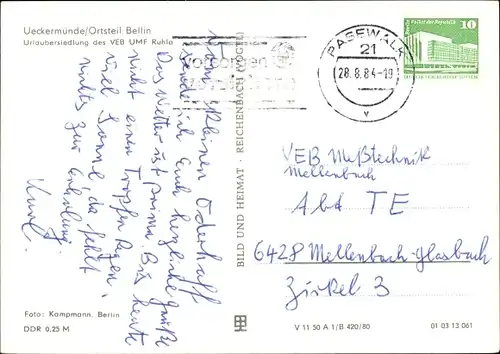 Ueckermünde/Ortsteil Bellin
Urlaubersiedlung des VEB UMF Ruhla
Vom kleinen Oderhaff
sende ich Euch herzliche Grüße
Das Wetter ist prima. Bis heute
nicht einen Tropfen Regen,
viel Sonne, da fehlt
nichts zur Erholung.
Foto: Kampmann, Berlin
DDR 0,25 M
BILD UND HEIMAT · REICHENBACH (VOGTL)
PASEWALK
21
28.8.84-19
v
Palast der Republik
10
VEB Meßtechnik
Mellenbach
Abt TE
6428 Mellenbach-Glasbach
Zirkel 3
V 11 50 A 1/B 420/80
01 03 13 061